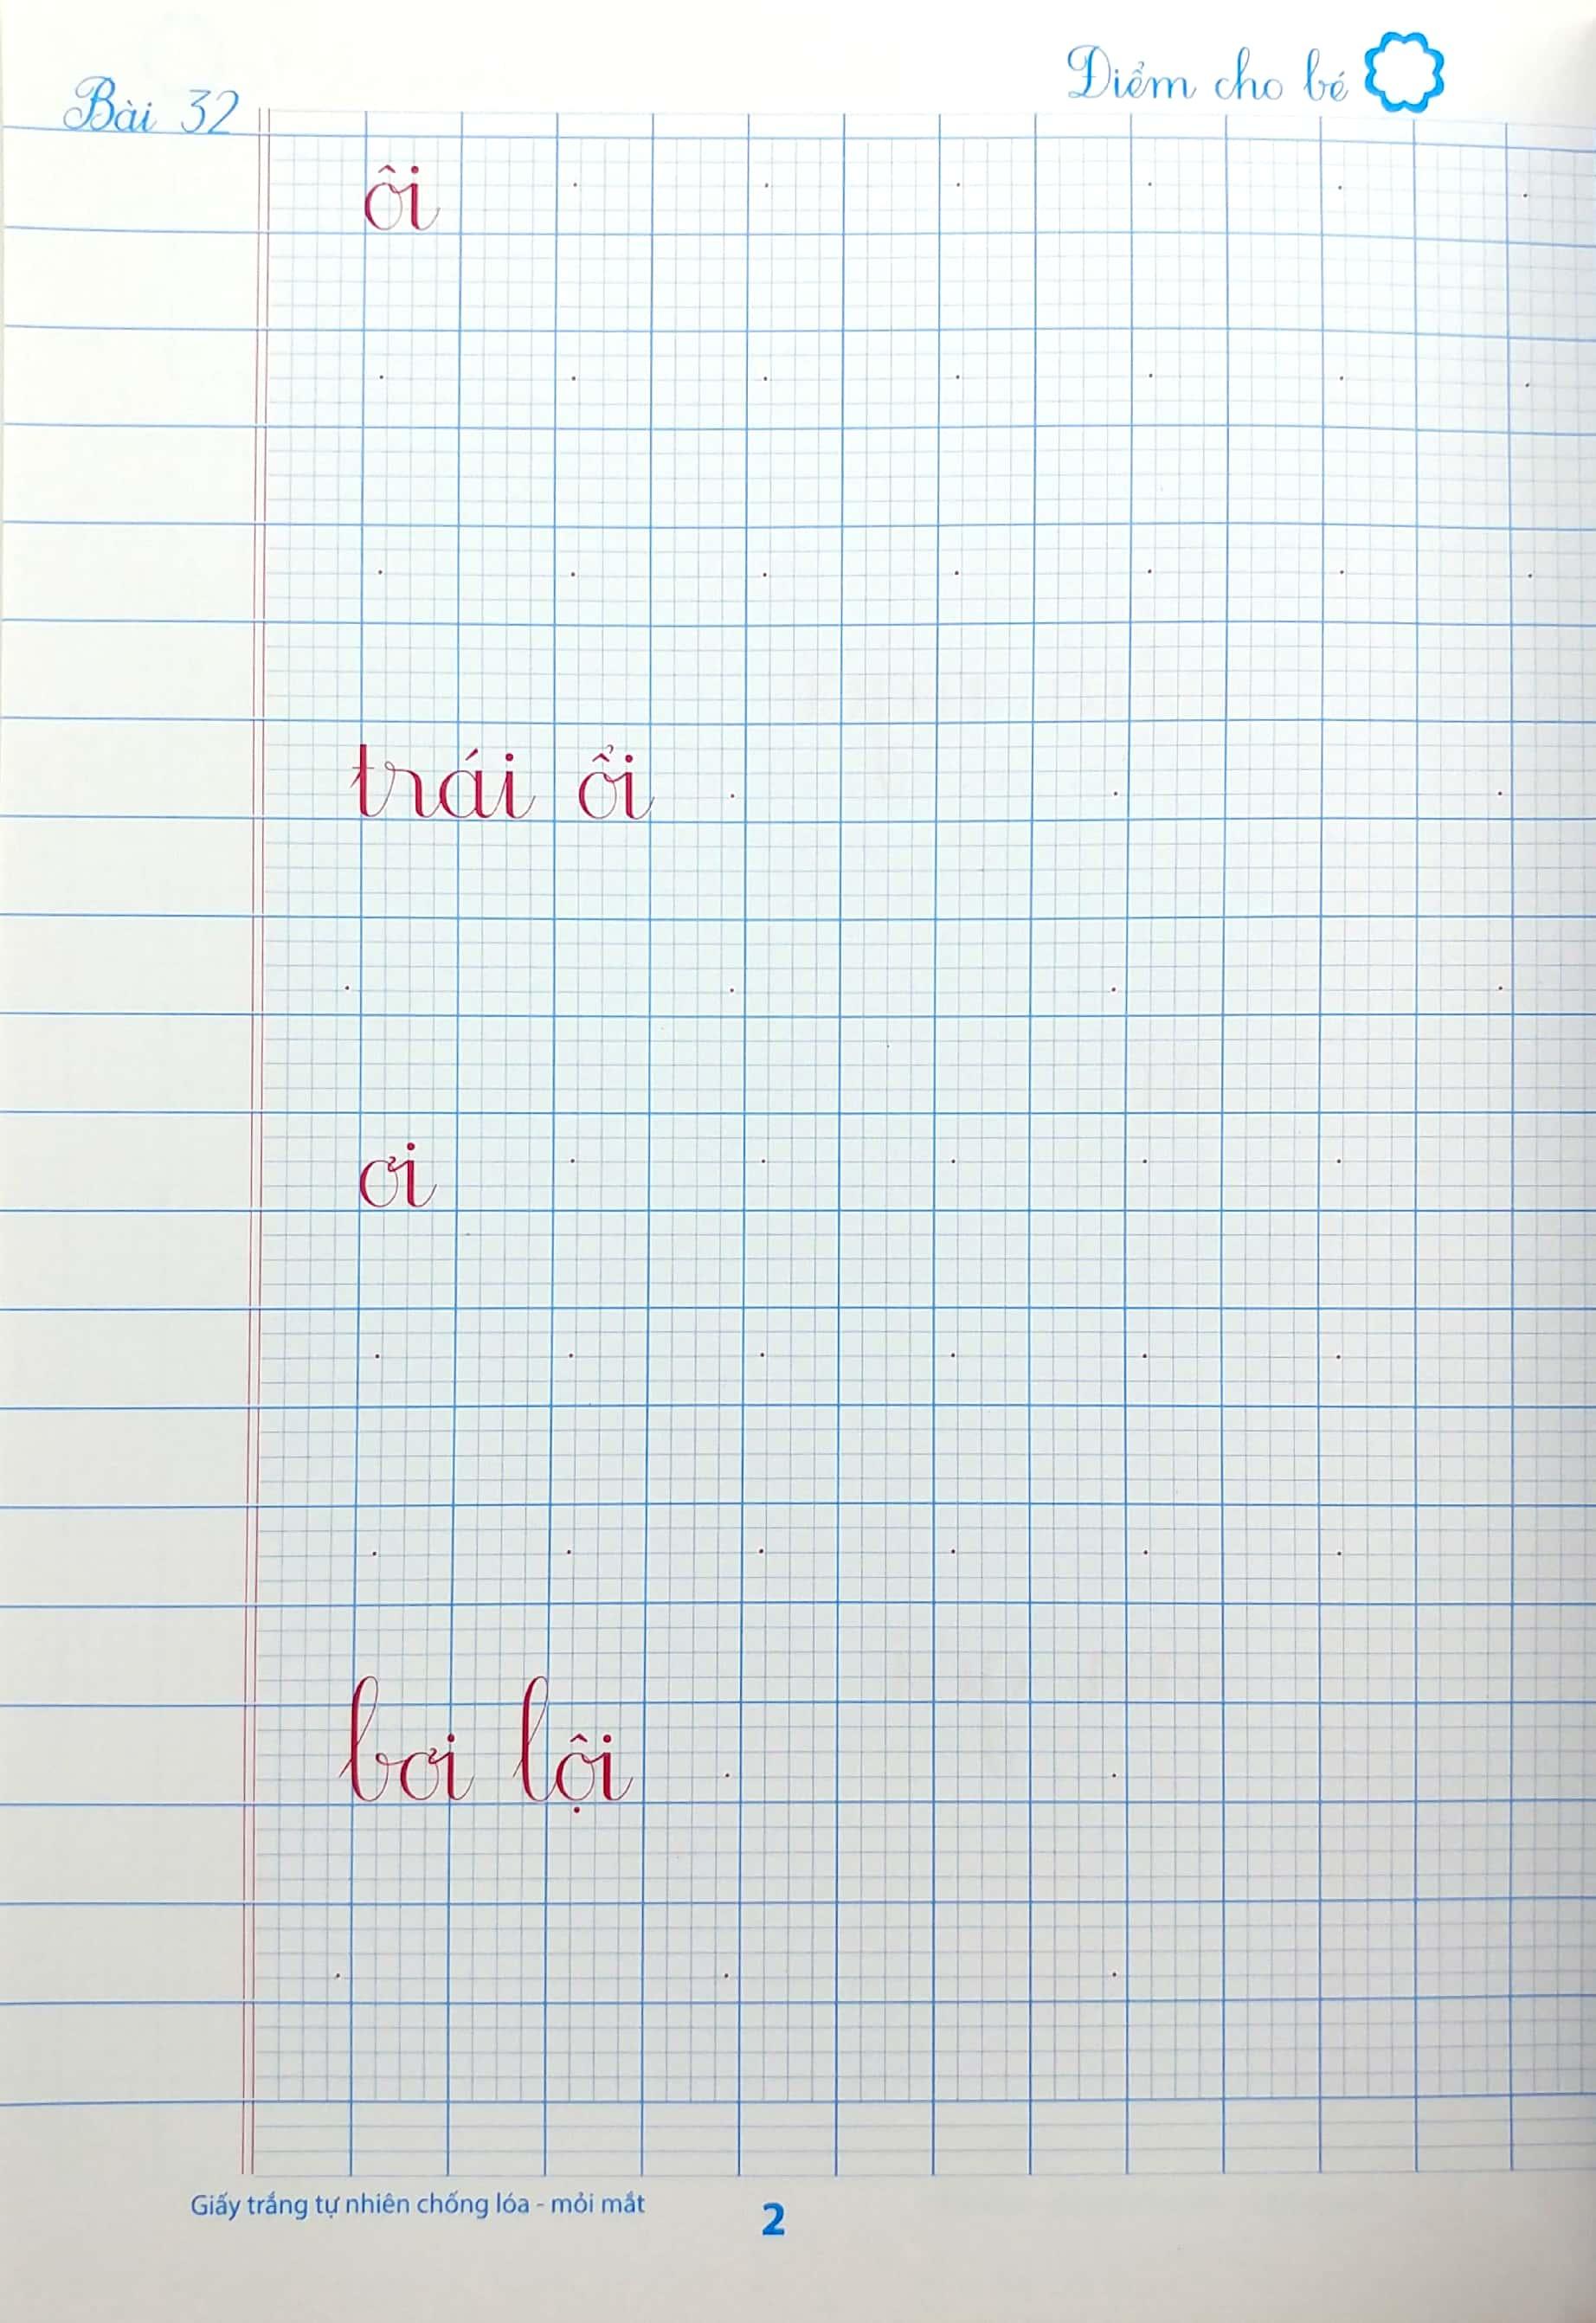 Điểm cho bé
Bài 32
ôi
trái ổi
ơi
bơi lội
Giấy trắng tự nhiên chống lóa - mỏi mắt
2